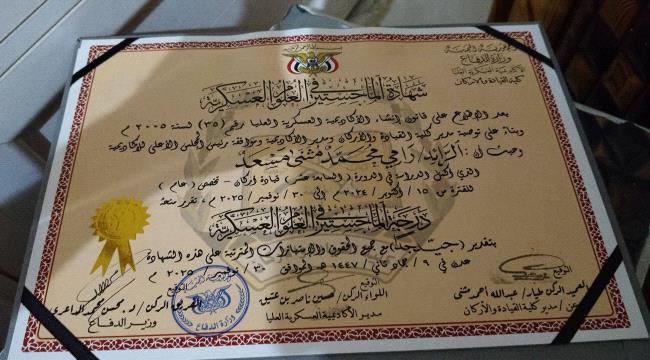 الجمهورية اليمنية
وزارة الدفاع
الأكاديمية العسكرية العليا
كلية القيادة والأركان
شهادة الماجستير في العلوم العسكرية
بعد الإطلاع على قانون إنشاء الأكاديمية العسكرية العليا رقم (٣٥) لسنة ٢٠٠٥م
وبناءً على توصية مدير كلية القيادة والأركان ومدير الأكاديمية وموافقة رئيس المجلس الأعلى للأكاديمية
وحيث أن: الرائد/ رامي محمد مثنى مسعد
الذي أكمل الدراسة في الدورة ( السابعة عشر ) قيادة أركان - تخصص ( عام )
للفترة من ١٥ / أكتوبر / ٢٠٢٤م إلى ٣٠ / نوفمبر / ٢٠٢٥م، تقرر منحه
درجة الماجستير في العلوم العسكرية
بتقدير ( جيد جداً ) مع جميع الحقوق والإمتيازات المترتبة على هذه الشهادة
عدن في ٩ / جماد ثاني / ١٤٤٧هـ الموافق ٣٠ / نوفمبر / ٢٠٢٥م
التوقيع
العميد الركن طيار/ عبدالله أحمد مثنى
مدير كلية القيادة والأركان
التوقيع
اللواء الركن/ حسين ناصر بن عشيق
مدير الأكاديمية العسكرية العليا
التوقيع
الفريق الركن/ د. محسن محمد الداعري
وزير الدفاع
وزارة الدفاع